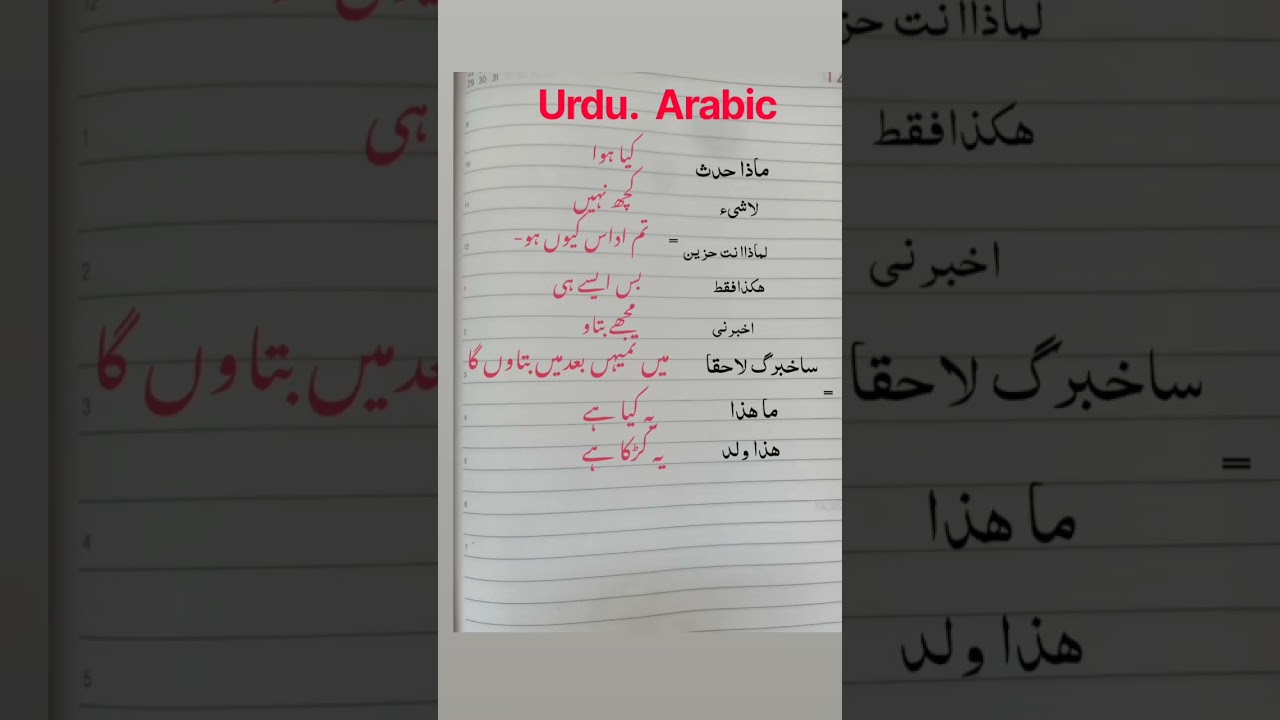 Urdu. Arabic
ماذا حدث کیا ہوا
لاشیء کچھ نہیں
لماذاانت حزین = تم اداس کیوں ہو-
ھکذافقط بس ایسے ہی
اخبرنی مجھے بتاو
ساخبرگ لاحقا میں تمیہں بعدمیں بتاوں گا
=
ما ھذا یہ کیا ہے
ھذا ولد یہ لڑکا ہے